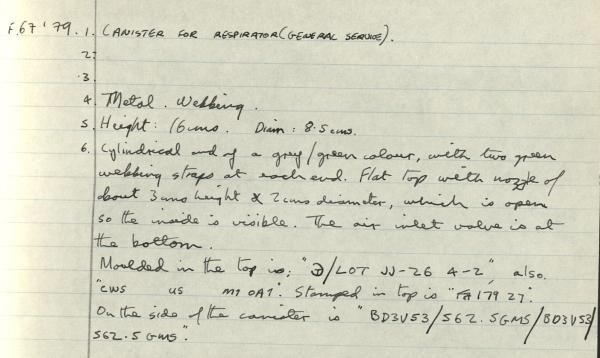 F.67'79. 1. CANISTER FOR RESPIRATOR (GENERAL SERVICE).
2.
3.
4. Metal. Webbing.
5. Height: 16cms. Diam: 8.5cms.
6. Cylindrical and of a grey/green colour, with two green
webbing straps at each end. Flat top with nozzle of
about 3cms height & 2cms diameter, which is open
so the inside is visible. The air inlet valve is at
the bottom.
Moulded in the top is; "D/LOT JJ-26 4-2", also.
"CWS US M1 0A1". Stamped in top is "FA179 27".
On the side of the canister is "BD3V53/562.5GMS/BD3V53/
562.5GMS".